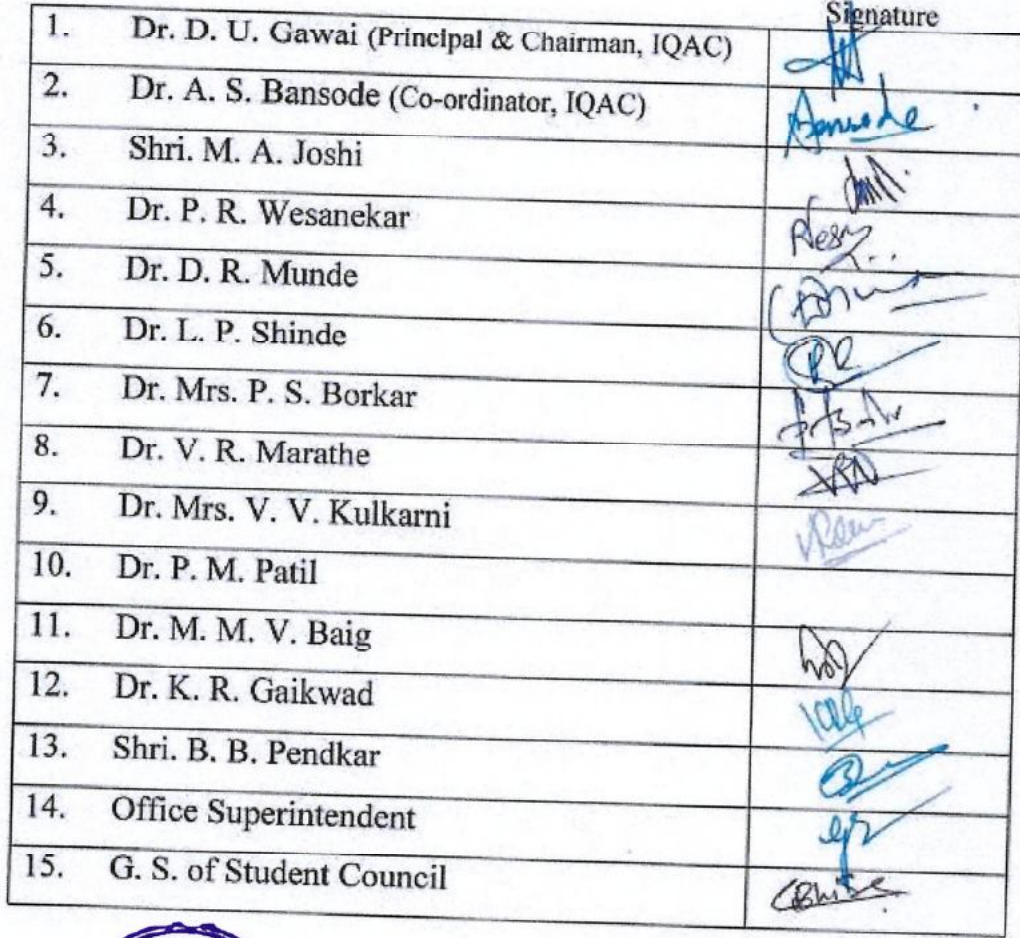 Signature
1. Dr. D. U. Gawai (Principal & Chairman, IQAC)
2. Dr. A. S. Bansode (Co-ordinator, IQAC) Bansode
3. Shri. M. A. Joshi
4. Dr. P. R. Wesanekar
5. Dr. D. R. Munde
6. Dr. L. P. Shinde
7. Dr. Mrs. P. S. Borkar
8. Dr. V. R. Marathe
9. Dr. Mrs. V. V. Kulkarni
10. Dr. P. M. Patil
11. Dr. M. M. V. Baig
12. Dr. K. R. Gaikwad
13. Shri. B. B. Pendkar
14. Office Superintendent
15. G. S. of Student Council